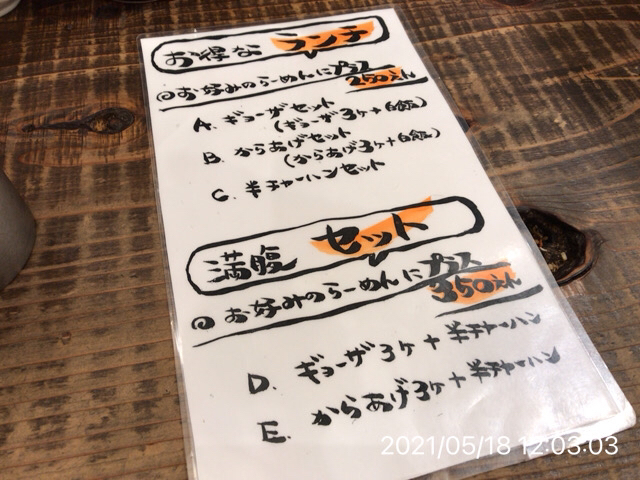 お得な ランチ
◎お好みのらーめんにプラス
250えん
A. ギョーザセット
(ギョーザ3ヶ+白飯)
B. からあげセット
(からあげ3ヶ+白飯)
C. 半チャーハンセット
満腹 セット
◎お好みのらーめんにプラス
350えん
D. ギョーザ3ヶ+半チャーハン
E. からあげ3ヶ+半チャーハン
2021/05/18 12:03:03